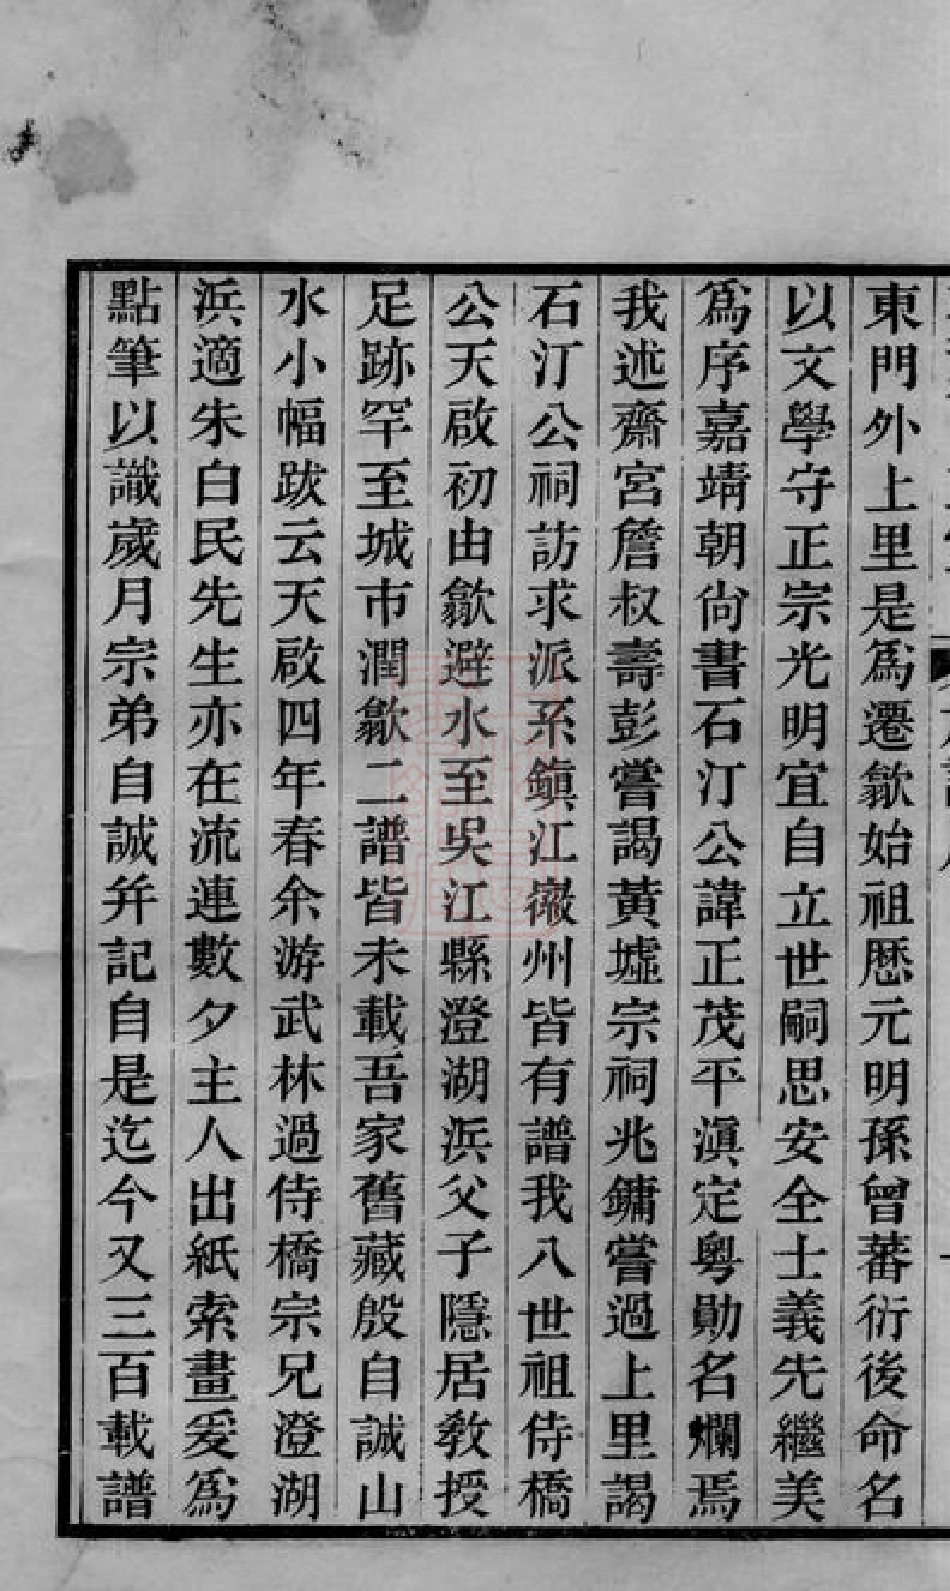 東門外上里是爲遷歙始祖歷元明孫曾蕃衍後命名
以文學守正宗光明宜自立世嗣思安全士義先繼美
爲序嘉靖朝尙書石汀公諱正茂平滇定粤勛名爛焉
我述齋宮詹叔壽彭嘗謁黃墟宗祠兆鏞嘗過上里謁
石汀公祠訪求派系鎭江徽州皆有譜我八世祖侍橋
公天啟初由歙避水至吳江縣澄湖浜父子隱居敎授
足跡罕至城市潤歙二譜皆未載吾家舊藏殷自誠山
水小幅跋云天啟四年春余游武林過侍橋宗兄澄湖
浜適朱白民先生亦在流連數夕主人出紙索畫爰爲
點筆以識歲月宗弟自誠幷記自是迄今又三百載譜